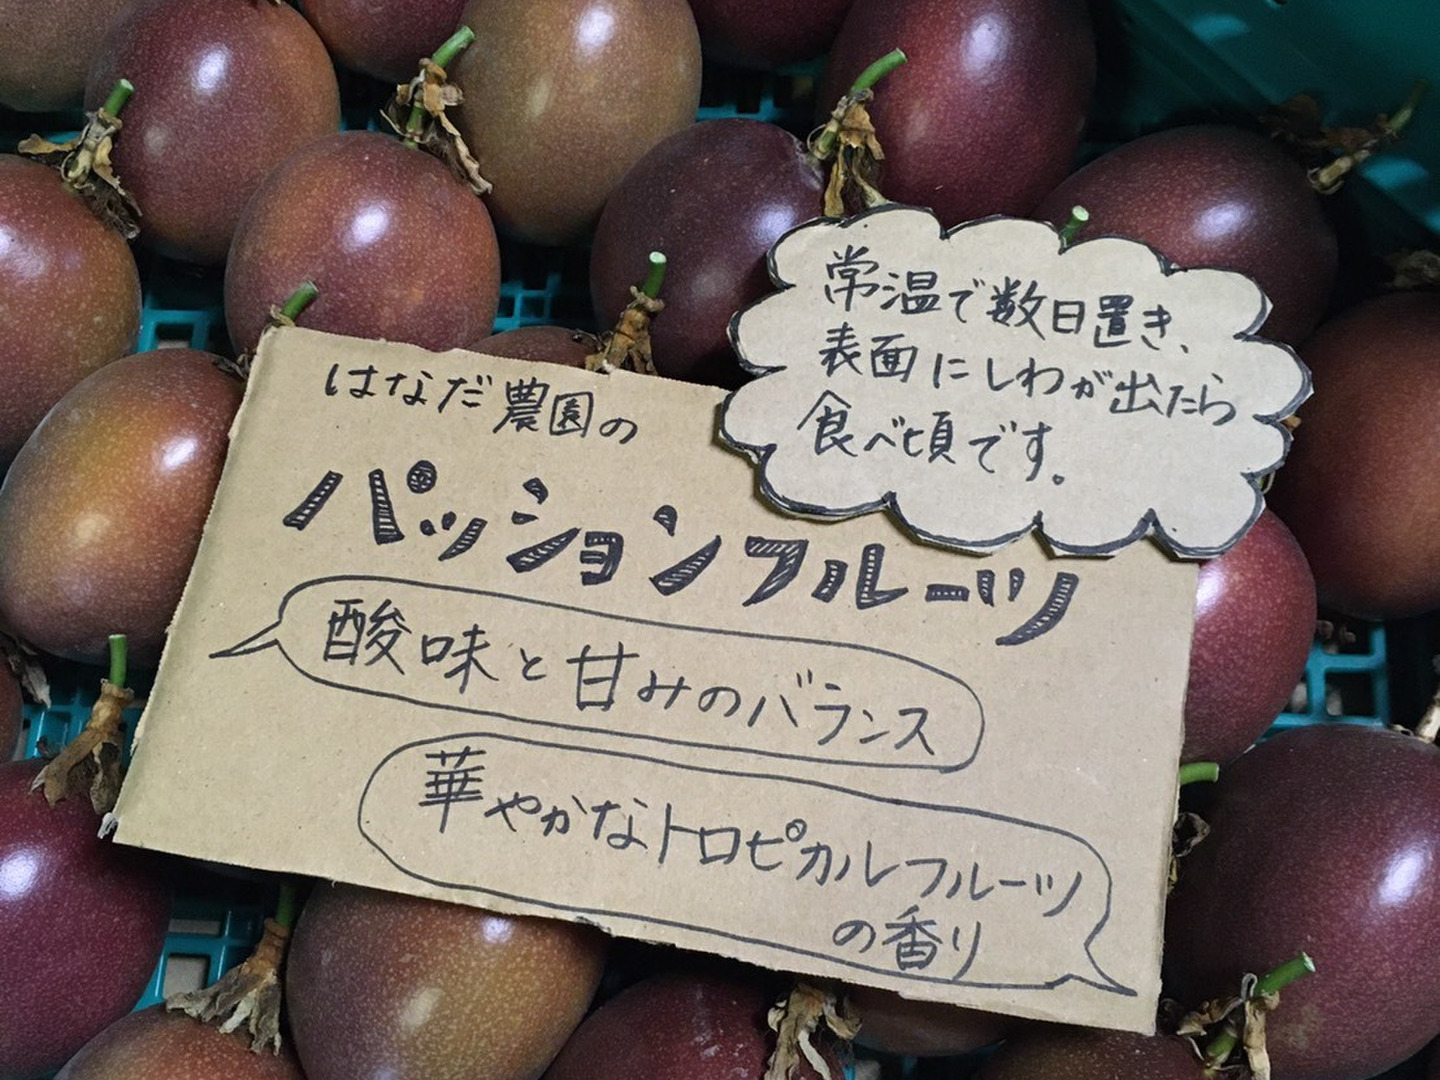 はなだ農園の
パッションフルーツ
酸味と甘みのバランス
華やかなトロピカルフルーツ
の香り
常温で数日置き、
表面にしわが出たら
食べ頃です。